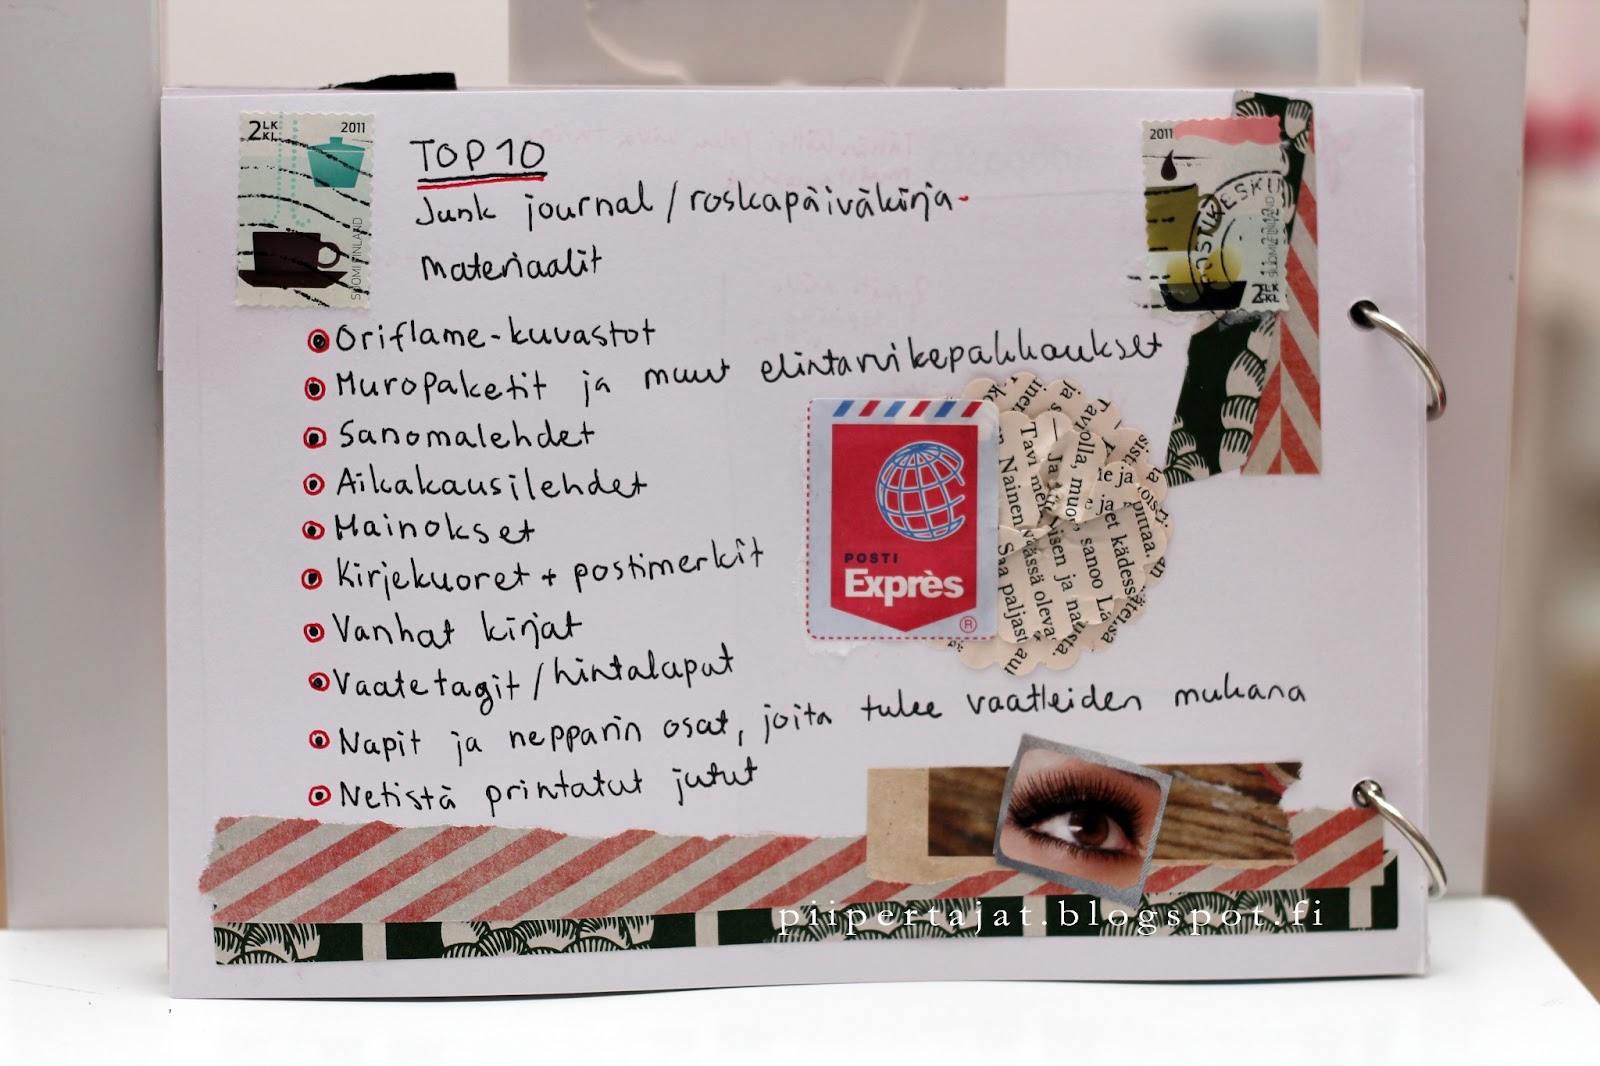 2 LK KL 2011
SUOMI FINLAND
TOP 10
Junk journal / roskapäiväkirja-
materiaalit
2011
POSTIKESKU
SUOMI FINLAND
2 LK KL
Oriflame-kuvastot
Muropaketit ja muut elintarvikepakkaukset
Sanomalehdet
Aikakausilehdet
Mainokset
Kirjekuoret + postimerkit
Vanhat kirjat
Vaatetagit / hintalaput
Napit ja nepparin osat, joita tulee vaatteiden mukana
Netistä printatut jutut
POSTI
Exprès
®
Taviolla, muo
Tavi
Nainen
Saa paljast
sanoo
et kädess
pittaa.
piipertajat.blogspot.fi